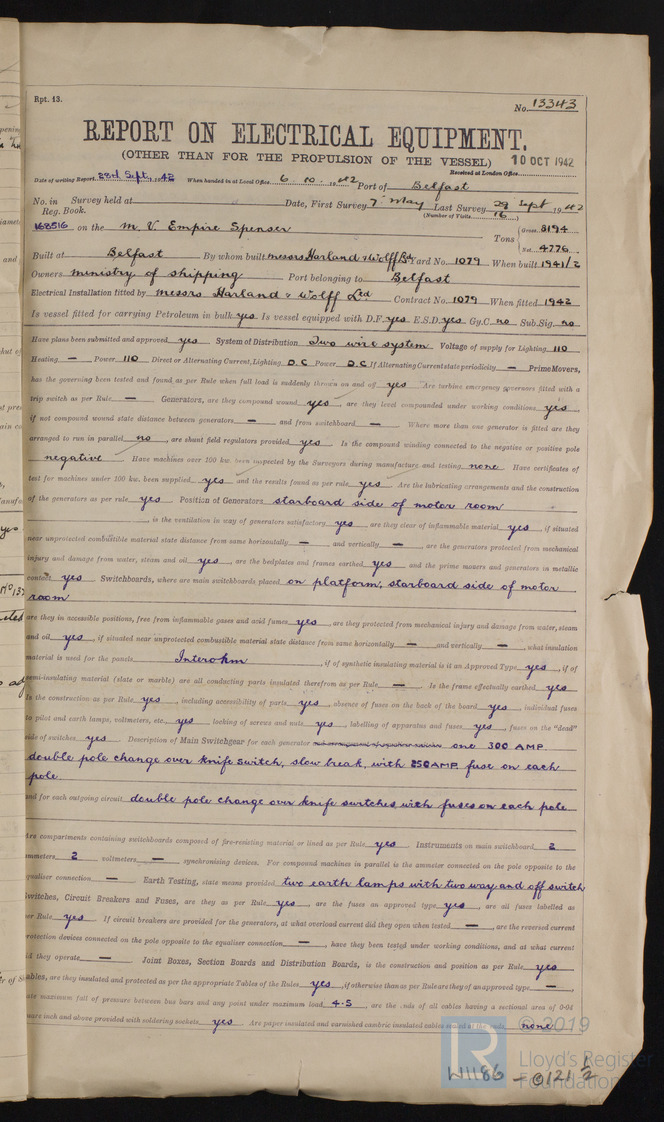 Rpt. 13.
No. 13343
REPORT ON ELECTRICAL EQUIPMENT.
(OTHER THAN FOR THE PROPULSION OF THE VESSEL)
10 OCT 1942
Date of writing Report 23rd Sept, 1942 When handed in at Local Office 6. 10. 1942 Port of Belfast Received at London Office
No. in Survey held at Date, First Survey 7 May Last Survey 29 Sept 1942
Reg. Book. (Number of Visits 76)
168516 on the m. V. Empire Spenser Tons { Gross 8194 Net 4776
Built at Belfast By whom built messrs Harland & Wolff Ltd Yard No. 1079 When built 1941/2
Owners ministry of shipping Port belonging to Belfast
Electrical Installation fitted by messrs Harland & Wolff Ltd Contract No. 1079 When fitted 1942
Is vessel fitted for carrying Petroleum in bulk yes Is vessel equipped with D.F. yes E.S.D. yes Gy.C. no Sub.Sig. no
Have plans been submitted and approved yes System of Distribution Two wire system Voltage of supply for Lighting 110
Heating — Power 110 Direct or Alternating Current, Lighting D.C Power D.C If Alternating Current state periodicity — Prime Movers,
has the governing been tested and found as per Rule when full load is suddenly thrown on and off yes Are turbine emergency governors fitted with a
trip switch as per Rule — Generators, are they compound wound yes, are they level compounded under working conditions yes,
if not compound wound state distance between generators — and from switchboard — Where more than one generator is fitted are they
arranged to run in parallel no, are shunt field regulators provided yes Is the compound winding connected to the negative or positive pole
negative Have machines over 100 kw. been inspected by the Surveyors during manufacture and testing none Have certificates of
test for machines under 100 kw. been supplied yes and the results found as per rule yes Are the lubricating arrangements and the construction
of the generators as per rule yes Position of Generators starboard side of motor room
, is the ventilation in way of generators satisfactory yes are they clear of inflammable material yes, if situated
near unprotected combustible material state distance from same horizontally — and vertically —, are the generators protected from mechanical
injury and damage from water, steam and oil yes, are the bedplates and frames earthed yes and the prime movers and generators in metallic
contact yes Switchboards, where are main switchboards placed on platform, starboard side of motor
room
are they in accessible positions, free from inflammable gases and acid fumes yes, are they protected from mechanical injury and damage from water, steam
and oil yes, if situated near unprotected combustible material state distance from same horizontally — and vertically —, what insulation
material is used for the panels Interohm, if of synthetic insulating material is it an Approved Type yes, if of
semi-insulating material (slate or marble) are all conducting parts insulated therefrom as per Rule — Is the frame effectually earthed yes
Is the construction as per Rule yes, including accessibility of parts yes, absence of fuses on the back of the board yes, individual fuses
to pilot and earth lamps, voltmeters, etc. yes locking of screws and nuts yes, labelling of apparatus and fuses yes, fuses on the "dead"
side of switches yes Description of Main Switchgear for each generator one 300 AMP.
double pole change over knife switch, slow break, with 250 AMP. fuse on each
pole
and for each outgoing circuit double pole change over knife switches with fuses on each pole
Are compartments containing switchboards composed of fire-resisting material or lined as per Rule yes Instruments on main switchboard 2
ammeters 2 voltmeters — synchronising devices. For compound machines in parallel is the ammeter connected on the pole opposite to the
equaliser connection — Earth Testing, state means provided two earth lamps with two way and off switch
Switches, Circuit Breakers and Fuses, are they as per Rule yes, are the fuses an approved type yes, are all fuses labelled as
per Rule yes If circuit breakers are provided for the generators, at what overload current did they open when tested —, are the reversed current
protection devices connected on the pole opposite to the equaliser connection —, have they been tested under working conditions, and at what current
did they operate — Joint Boxes, Section Boards and Distribution Boards, is the construction and position as per Rule yes
Cables, are they insulated and protected as per the appropriate Tables of the Rules yes, if otherwise than as per Rule are they of an approved type —,
state maximum fall of pressure between bus bars and any point under maximum load 4.5, are the ends of all cables having a sectional area of 0·04
square inch and above provided with soldering sockets yes Are paper insulated and varnished cambric insulated cables sealed at the ends none
© 2019
Lloyd's Register
Foundation
W1186 - 0121 1/2